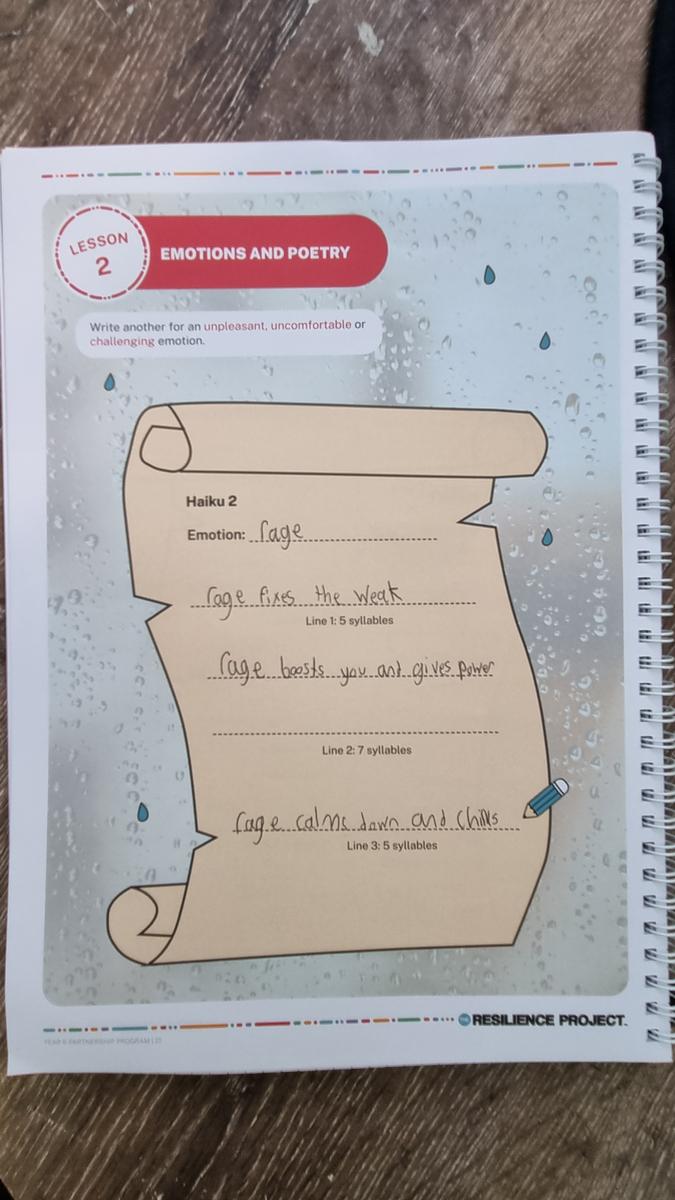 LESSON
2
EMOTIONS AND POETRY
Write another for an unpleasant, uncomfortable or
challenging emotion.
Haiku 2
Emotion: rage
rage fixes the weak
Line 1: 5 syllables
rage boosts you ant gives power
Line 2: 7 syllables
rage calms down and chills
Line 3: 5 syllables
THE RESILIENCE PROJECT.
YEAR 6 PARTNERSHIP PROGRAM | 21